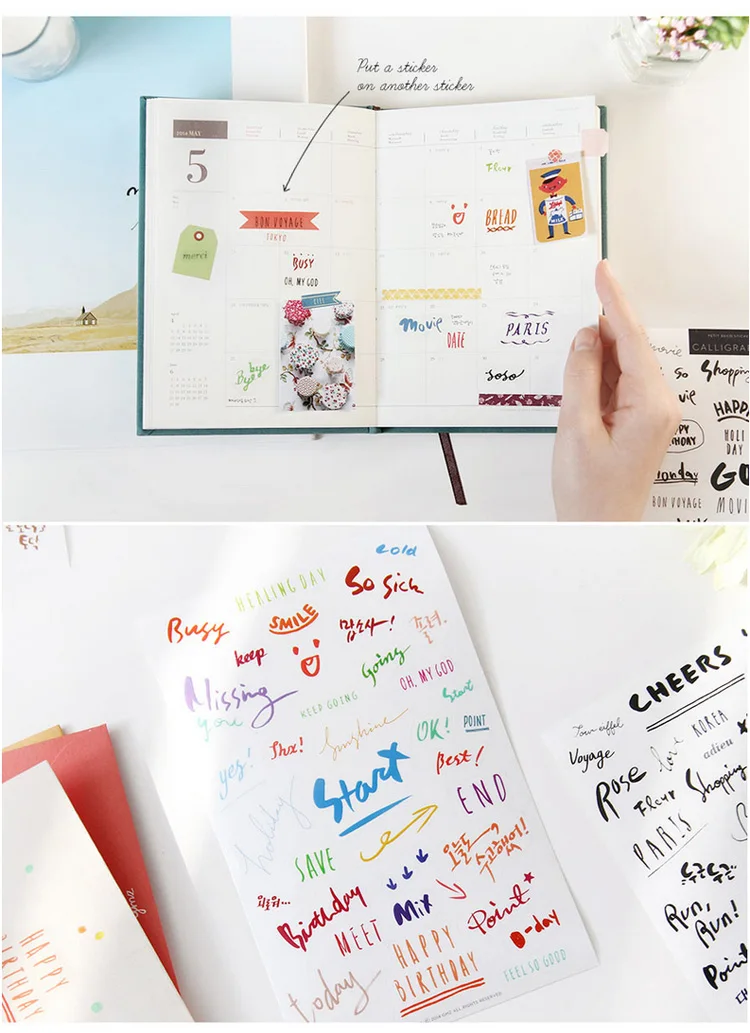 Put a sticker
on another sticker
2014 MAY
5
Fleur
BREAD
MILK
BON VOYAGE
TOKYO
merci
BUSY
OH, MY GOD
movie
DATE
PARIS
bye
Bye
SOSO
CALLIGRA
movie
so
Shopping
HAPPY
HOLI
DAY
Monday
GO
BON VOYAGE
MOVI
cold
HEALING DAY
So Sick
Busy
SMILE
맙소사!
keep
Going
OH, MY GOD
Missing
you
KEEP GOING
Start
OK!
POINT
yes!
Shx!
Sunshine
Best!
Start
holiday
END
SAVE
오늘도
수고했어!
Birthday
MEET
Mix
Point
D-day
today
HAPPY
BIRTHDAY
FEEL SO GOOD
CHEERS
Tour eiffel
Voyage
love
KOREA
adieu
Rose
Fleur
Shopping
PARIS
두근두근
Run,
Run!
Point
HAPPY
BIRTHDAY